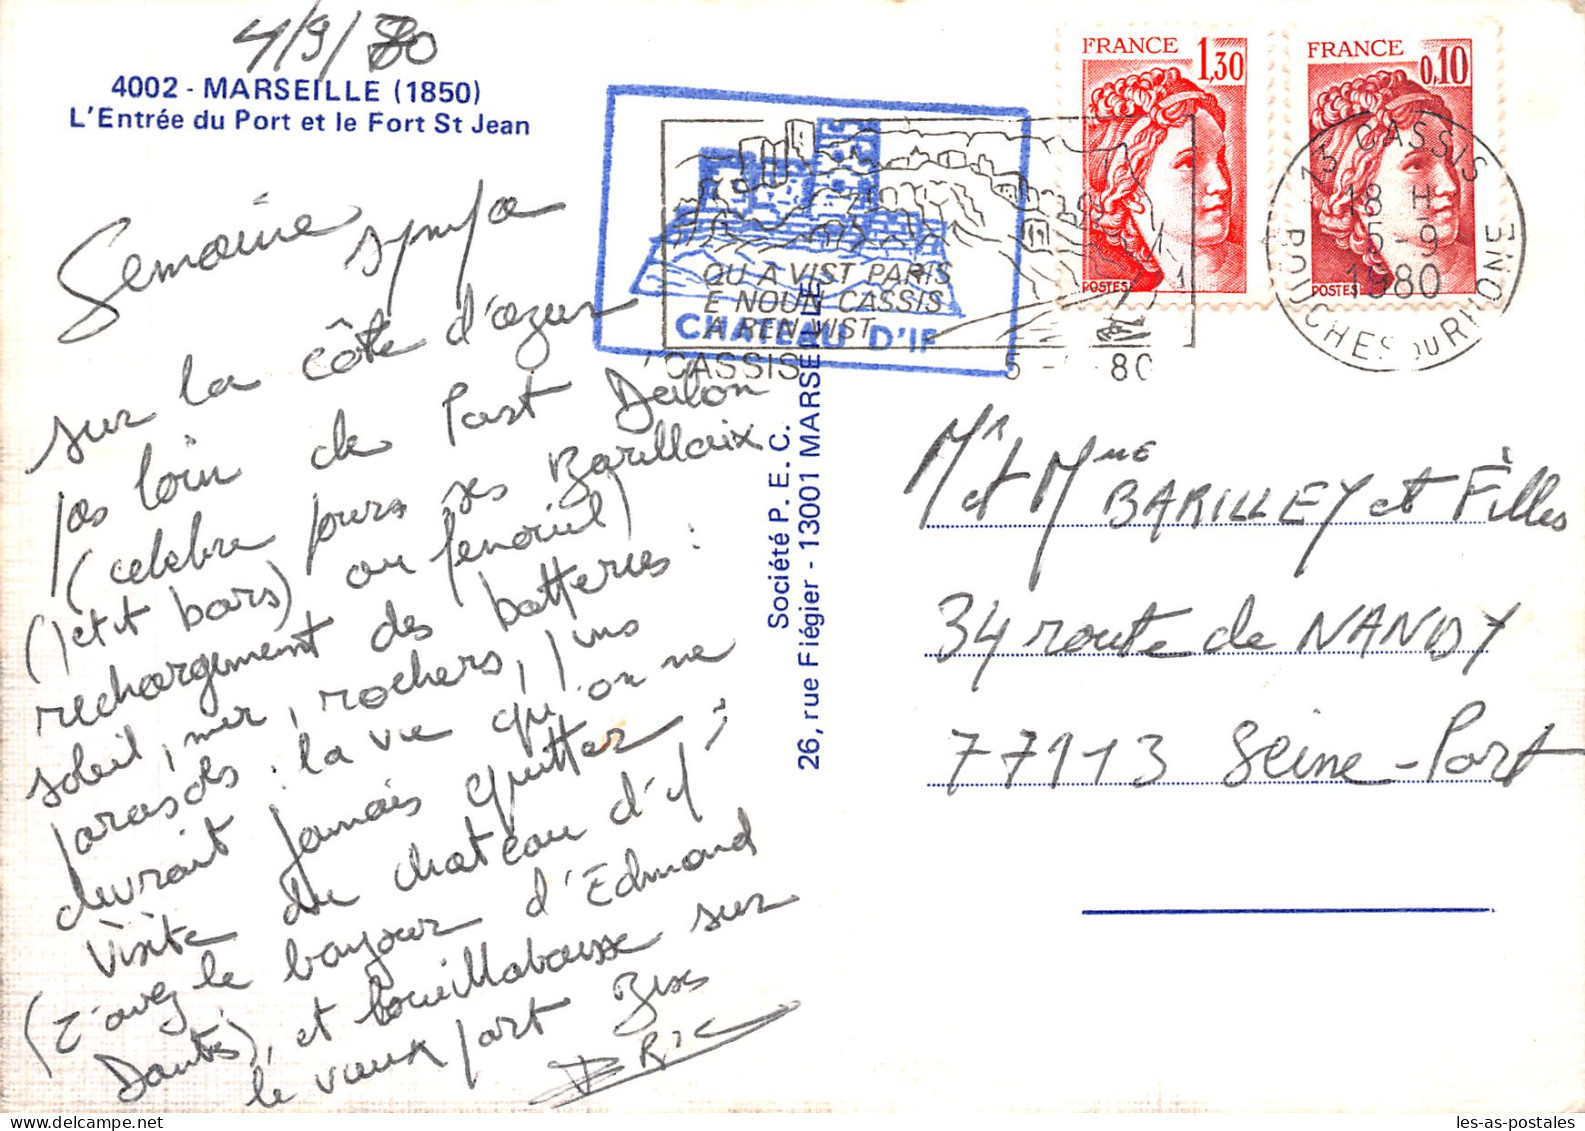 4/9/80
4002 - MARSEILLE (1850)
L'Entrée du Port et le Fort St Jean
Semaine sympa
sur la côte d'azur
pas loin de Port Dalon
(celebre pour ses Barillaix
(petit bars) ou fenouil)
rechargement des batteries :
soleil, mer, rochers, pins
parasols : la vie qu'on ne
devrait jamais quitter ;
Visite du chateau d'if
(z'avez le bonjour d'Edmond
Dantès), et bouillabaisse sur
le vieux port Bises
ERIC
Société P. E. C.
26, rue Fiégier - 13001 MARSEILLE
FRANCE 1,30
POSTES
FRANCE 0,10
POSTES
QU A VIST PARIS
E NOUN CASSIS
A REN VIST
CASSIS
CHATEAU D'IF
5 - 80
13 CASSIS
18 H
5-9
1980
BOUCHES DU RHONE
Mr et Mme BARILLEY et Filles
34 route de NANDY
77113 Seine-Port
les-as-postales.com